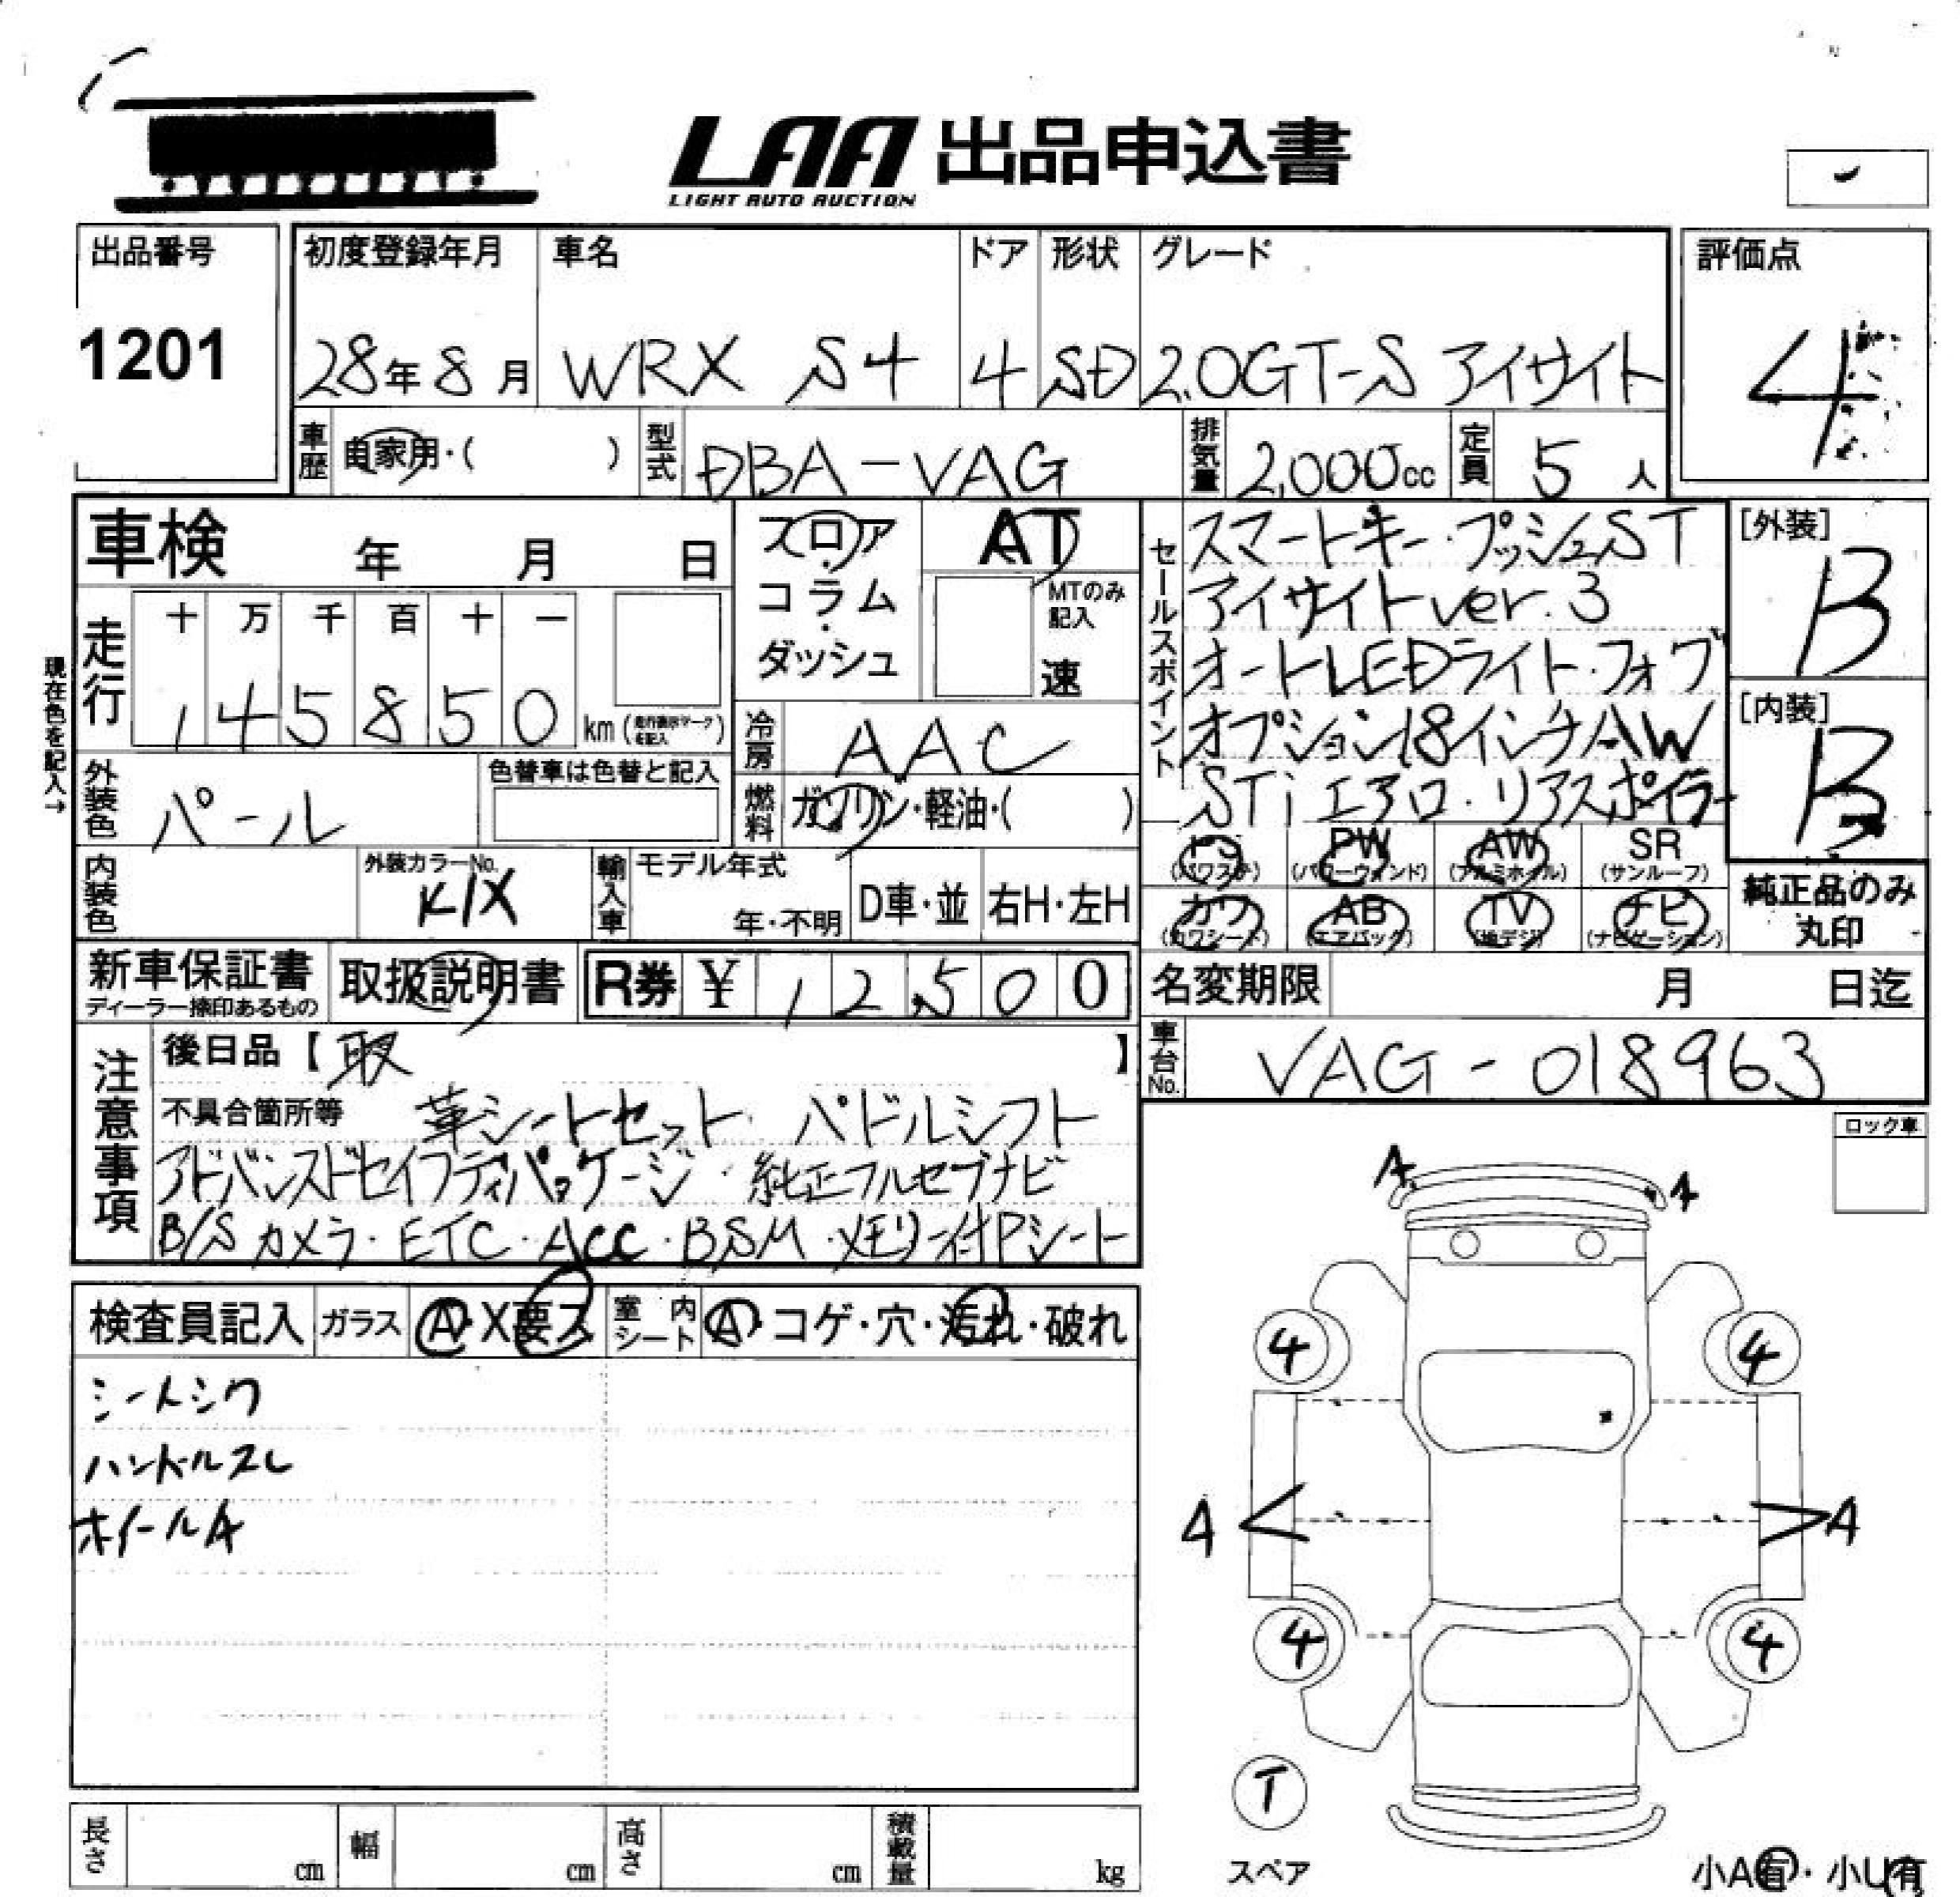 LAA 出品申込書
LIGHT AUTO AUCTION
出品番号 初度登録年月 車名 ドア 形状 グレード 評価点
1201 28年8月 WRX S4 4 SD 2.0GT-S アイサイト 4
車歴 自家用・( ) 型式 DBA-VAG 排気量 2,000cc 定員 5人
車検 年 月 日
フロア・コラム・ダッシュ
AT
MTのみ記入
速
セールスポイント
スマートキー・プッシュST
アイサイトver.3
オートLEDライト・フォグ
オプション18インチAW
STiエアロ・リアスポイラー
[外装]
B
[内装]
B
現在色を記入→
走行 十 万 千 百 十 一
145850 km (走行表示マークを記入)
冷房 AAC
外装色 パール 色替車は色替と記入
燃料 ガソリン・軽油・( )
内装色 外装カラーNo. K1X
輸入車 モデル年式 年・不明 D車・並 右H・左H
PS (パワステ) PW (パワーウィンド) AW (アルミホイル) SR (サンルーフ)
カワ (カワシート) AB (エアバック) TV (地デジ) ナビ (ナビゲーション)
純正品のみ丸印
新車保証書 ディーラー捺印あるもの 取扱説明書 R券 ¥ 12,500
名変期限 月 日迄
車台No. VAG-018963
注意事項
後日品【取 】
不具合箇所等 革シートセット・パドルシフト
アドバンスドセイフティパッケージ・純正フルセグナビ
B/Sカメラ・ETC・ACC・BSM・メモリー付Pシート
ロック車
検査員記入 ガラス A・X要ス 室内シート A・コゲ・穴・汚れ・破れ
シートシワ
ハンドルスレ
ホイールA
A A
4 4
A A
4 4
T
スペア
小A有・小U有
長さ cm 幅 cm 高さ cm 積載量 kg